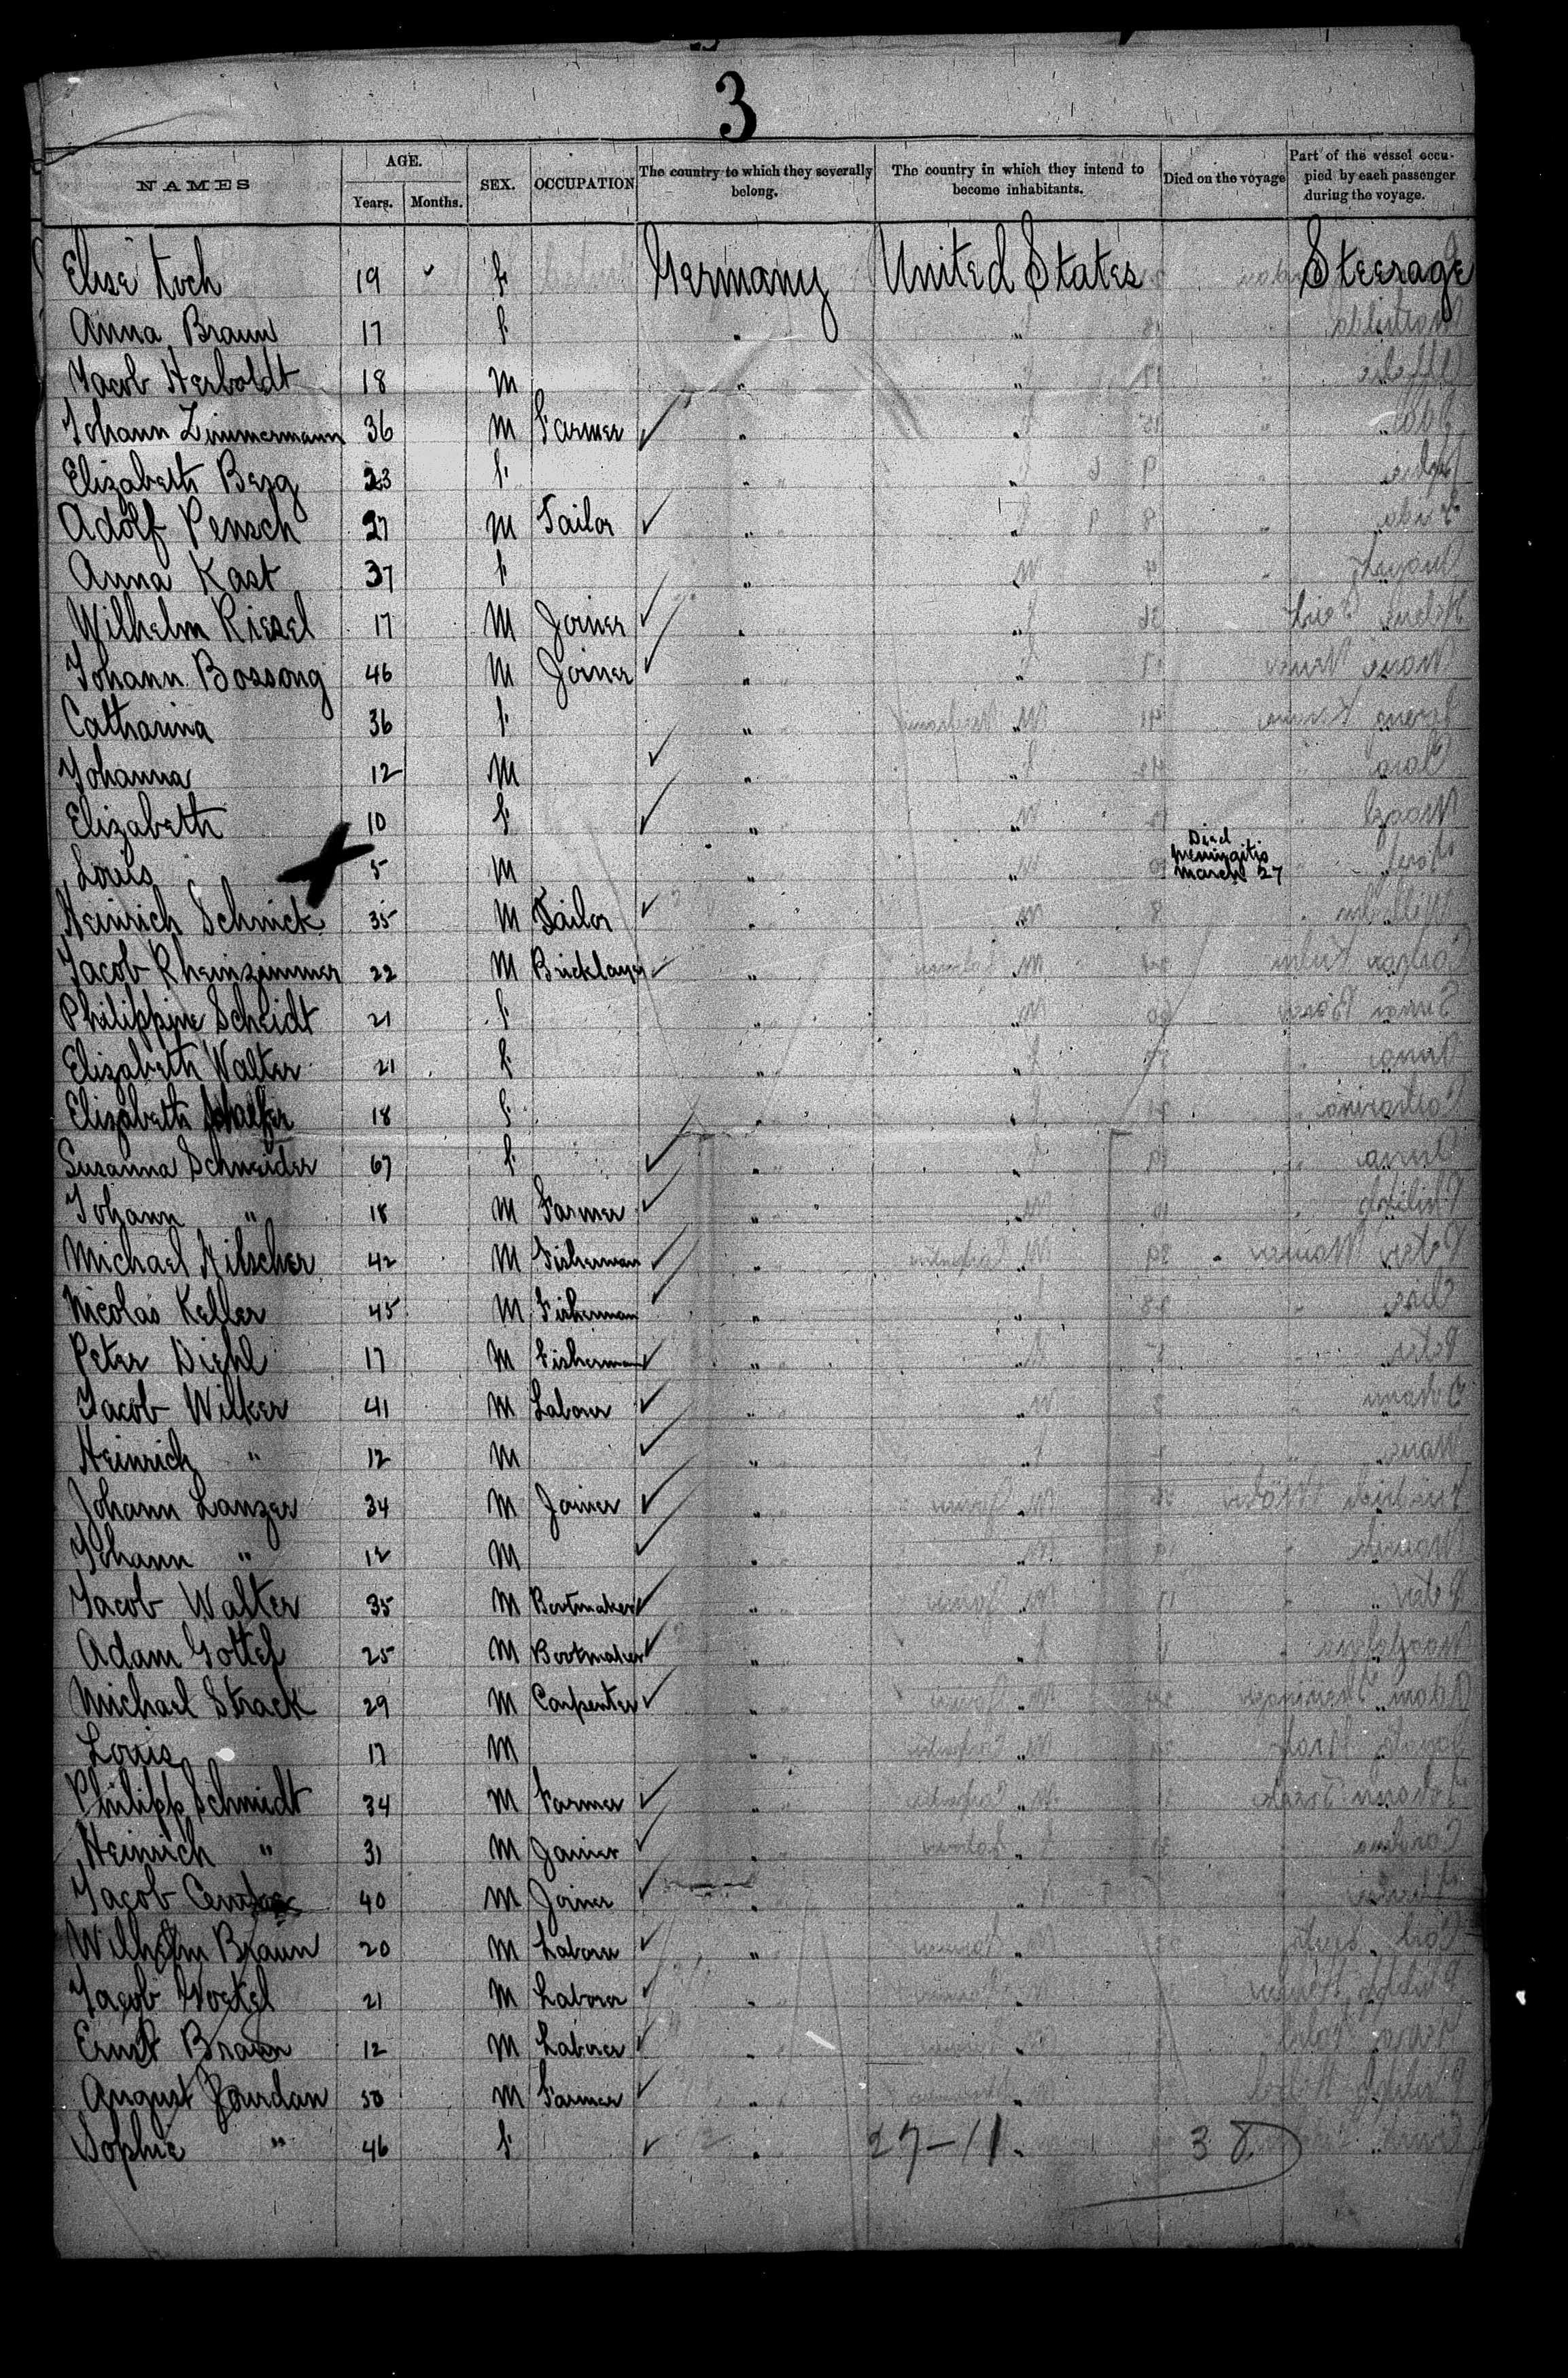 3
NAMES AGE. Years. Months. SEX. OCCUPATION The country to which they severally belong. The country in which they intend to become inhabitants. Died on the voyage Part of the vessel occupied by each passenger during the voyage.
Elise Koch 19 f Germany United States Steerage
Anna Braun 17 f " "
Jacob Herboldt 18 M " "
Johann Zimmermann 36 M Farmer " "
Elizabeth Berg 23 f " "
Adolf Pensch 27 M Tailor " "
Anna Kast 37 f " "
Wilhelm Riesel 17 M Joiner " "
Johann Bossong 46 M Joiner " "
Catharina 36 f " "
Johanna 12 M " "
Elizabeth 10 f " "
Louis 5 M " " Died Meningitis March 27
Heinrich Schnick 35 M Tailor " "
Jacob Rheinzimmer 22 M Bricklayer " "
Philippine Scheidt 21 f " "
Elizabeth Walter 21 f " "
Elizabeth 18 f " "
Susanna Schneider 67 f " "
Johann " 18 M Farmer " "
Michael Hilscher 42 M Fisherman " "
Nicolas Keller 45 M Fisherman " "
Peter Diehl 17 M Fisherman " "
Jacob Wilker 41 M Laborer " "
Heinrich " 12 M " "
Johann Lanzer 34 M Joiner " "
Johann " 12 M " "
Jacob Walter 35 M Bootmaker " "
Adam Gottel 25 M Bootmaker " "
Michael Strack 29 M Carpenter " "
Louis 17 M " "
Philipp Schmidt 34 M Farmer " "
Heinrich " 31 M Joiner " "
Jacob 40 M Joiner " "
Wilhelm Braun 20 M Laborer " "
Jacob 21 M Laborer " "
Ernst Braun 12 M Laborer " "
August Jourdan 50 M Farmer " "
Sophie " 46 f " " 27-11 38